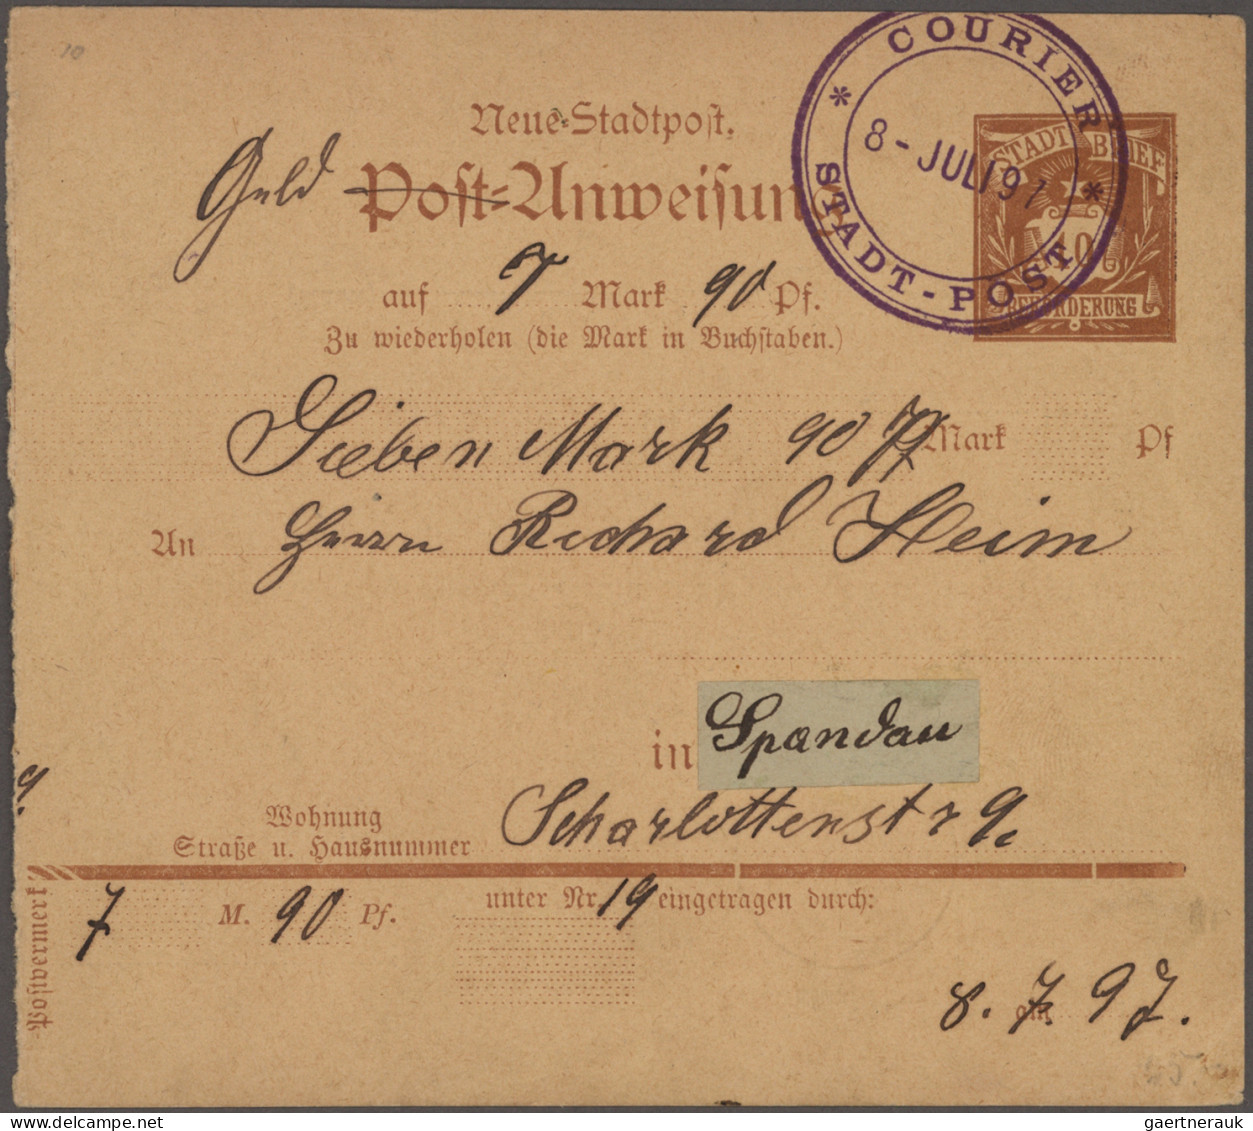 COURIER
8-JULI 97
STADT-POST
STADT BRIEF
10
BEFÖRDERUNG
Neue Stadtpost.
Geld Post-Anweisung
auf 7 Mark 90 Pf.
Zu wiederholen (die Mark in Buchstaben.)
Sieben Mark 90 Pf Mark Pf
An Herrn Richard Heim
in Spandau
Wohnung
Scharlottenstr 9.
Straße u. Hausnummer
7 M. 90 Pf. unter Nr. 19 eingetragen durch:
Postvermerk
am
8. 7. 97.
gaertnerauk